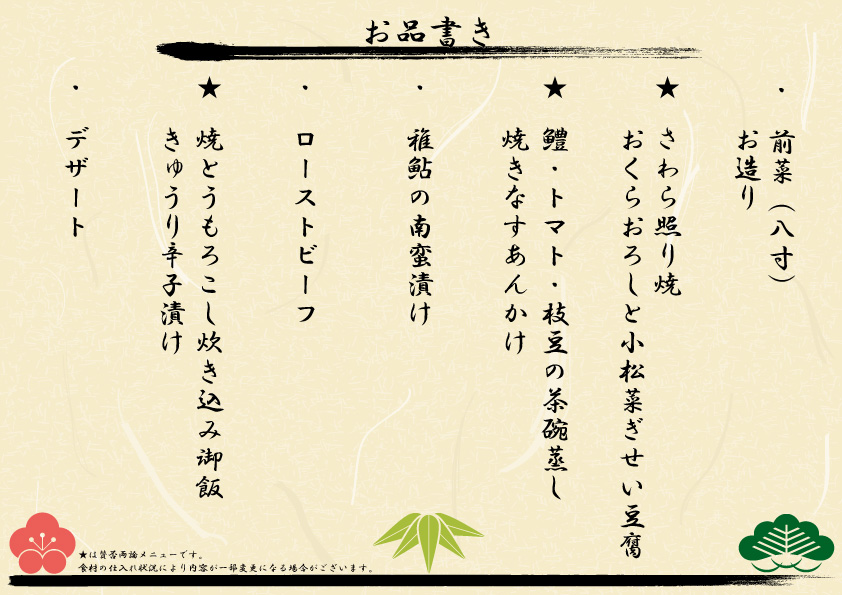 お品書き
・前菜（八寸）
お造り
★さわら照り焼
おくらおろしと小松菜ぎせい豆腐
★鱧・トマト・枝豆の茶碗蒸し
焼きなすあんかけ
・稚鮎の南蛮漬け
・ローストビーフ
★焼とうもろこし炊き込み御飯
きゅうり辛子漬け
・デザート
★は賛否両論メニューです。
食材の仕入れ状況により内容が一部変更になる場合がございます。